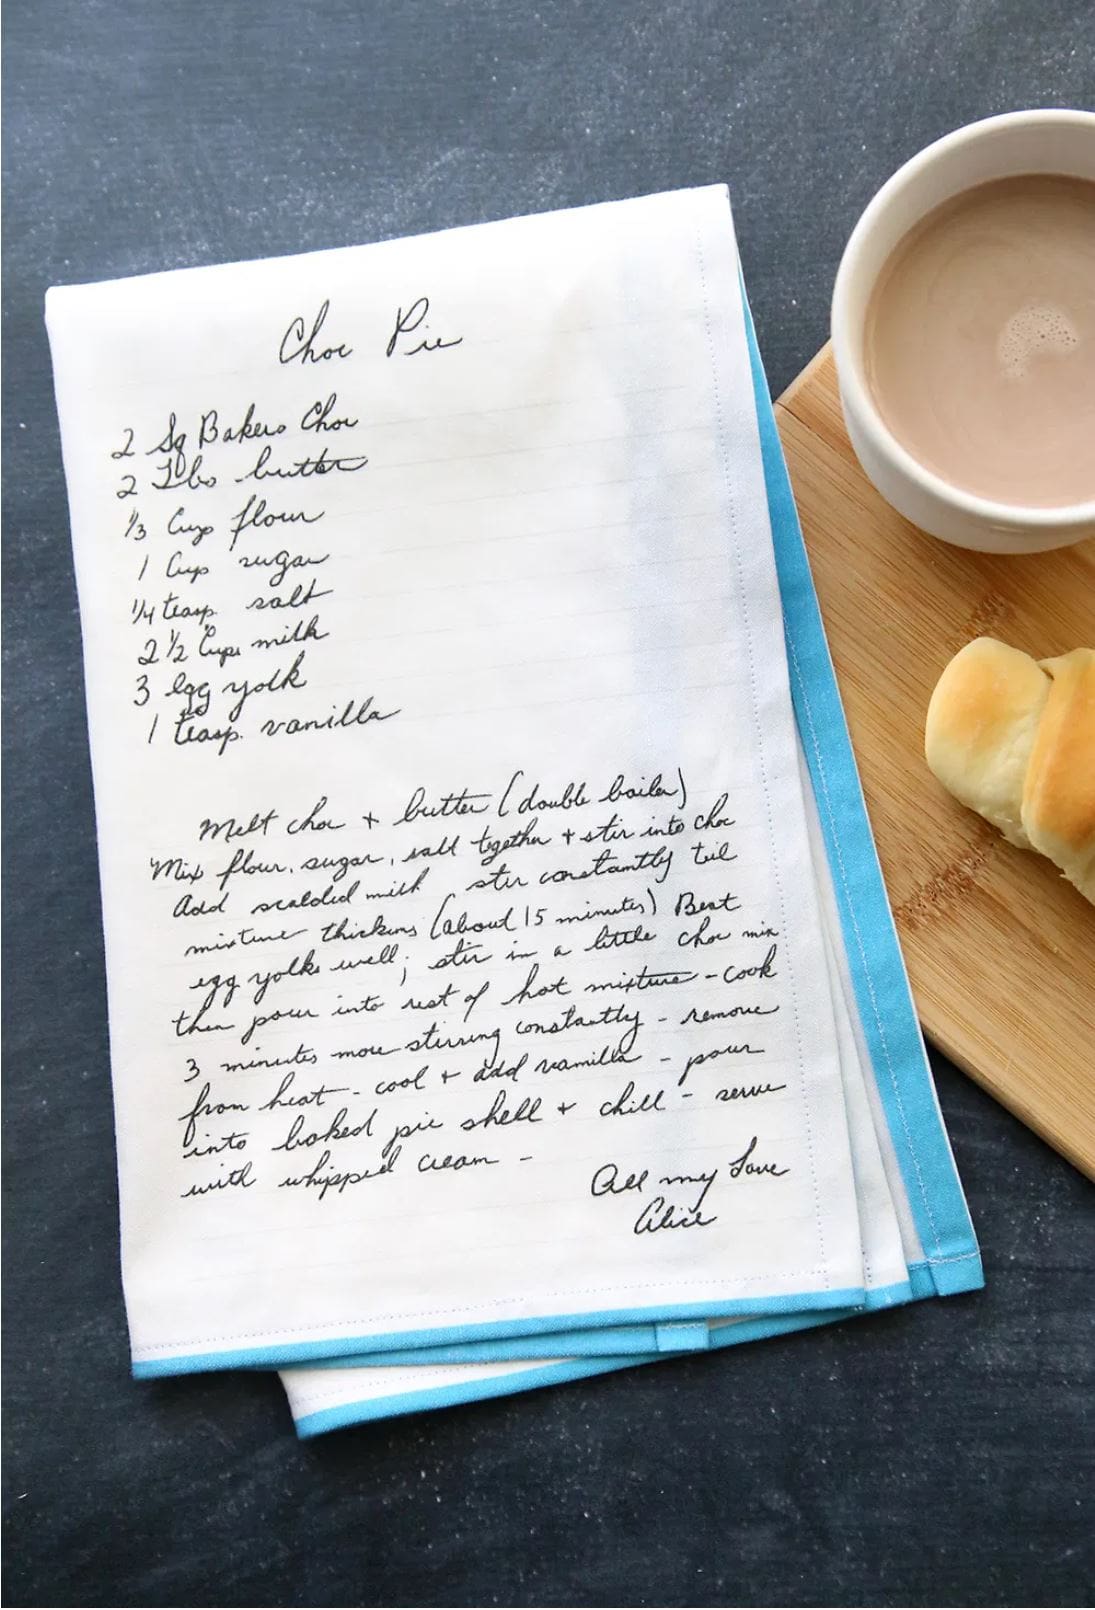 Choc Pie
2 Sq Bakers Choc
2 Tbs butter
1/3 Cup flour
1 Cup sugar
1/4 teasp. salt
2 1/2 Cups milk
3 egg yolk
1 teasp. vanilla
Melt choc + butter (double boiler)
Mix flour, sugar, salt together + stir into choc
Add scalded milk stir constantly till
mixture thickens (about 15 minutes) Beat
egg yolks well; stir in a little choc mix
then pour into rest of hot mixture - cook
3 minutes more stirring constantly - remove
from heat - cool + add vanilla - pour
into baked pie shell + chill - serve
with whipped cream -
All my Love
Alice